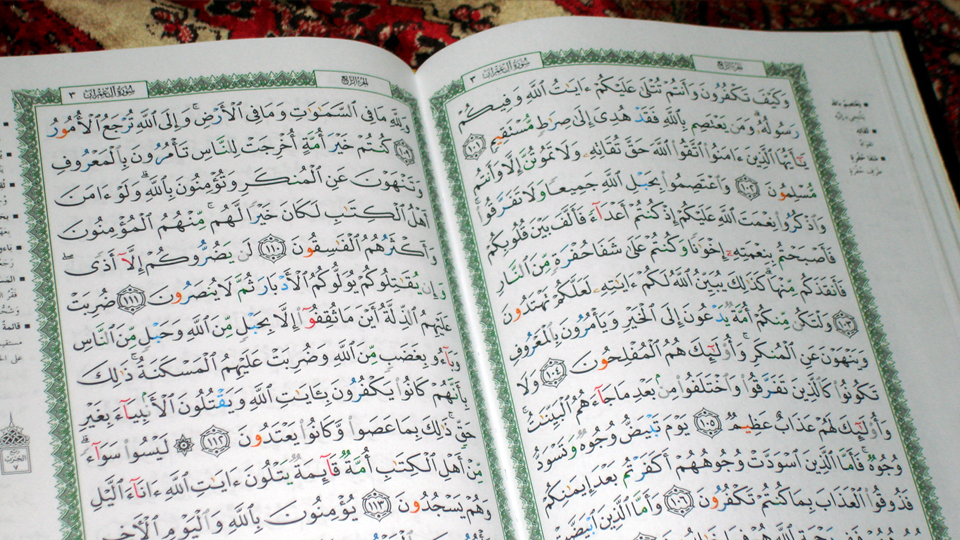 الجزء الرابع
سورة آل عمران ٣
وَكَيْفَ تَكْفُرُونَ وَأَنتُمْ تُتْلَىٰ عَلَيْكُمْ ءَايَٰتُ ٱللَّهِ وَفِيكُمْ
رَسُولُهُۥ وَمَن يَعْتَصِم بِٱللَّهِ فَقَدْ هُدِىَ إِلَىٰ صِرَٰطٍ مُّسْتَقِيمٍ ١٠١
يَٰٓأَيُّهَا ٱلَّذِينَ ءَامَنُوا۟ ٱتَّقُوا۟ ٱللَّهَ حَقَّ تُقَاتِهِۦ وَلَا تَمُوتُنَّ إِلَّا وَأَنتُم
مُّسْلِمُونَ ١٠٢ وَٱعْتَصِمُوا۟ بِحَبْلِ ٱللَّهِ جَمِيعًا وَلَا تَفَرَّقُوا۟
وَٱذْكُرُوا۟ نِعْمَتَ ٱللَّهِ عَلَيْكُمْ إِذْ كُنتُمْ أَعْدَآءً فَأَلَّفَ بَيْنَ قُلُوبِكُمْ
فَأَصْبَحْتُم بِنِعْمَتِهِۦٓ إِخْوَٰنًا وَكُنتُمْ عَلَىٰ شَفَا حُفْرَةٍ مِّنَ ٱلنَّارِ
فَأَنقَذَكُم مِّنْهَا كَذَٰلِكَ يُبَيِّنُ ٱللَّهُ لَكُمْ ءَايَٰتِهِۦ لَعَلَّكُمْ تَهْتَدُونَ
١٠٣ وَلْتَكُن مِّنكُمْ أُمَّةٌ يَدْعُونَ إِلَى ٱلْخَيْرِ وَيَأْمُرُونَ بِٱلْمَعْرُوفِ
وَيَنْهَوْنَ عَنِ ٱلْمُنكَرِ وَأُو۟لَٰٓئِكَ هُمُ ٱلْمُفْلِحُونَ ١٠٤ وَلَا
تَكُونُوا۟ كَٱلَّذِينَ تَفَرَّقُوا۟ وَٱخْتَلَفُوا۟ مِنۢ بَعْدِ مَا جَآءَهُمُ ٱلْبَيِّنَٰتُ
وَأُو۟لَٰٓئِكَ لَهُمْ عَذَابٌ عَظِيمٌ ١٠٥ يَوْمَ تَبْيَضُّ وُجُوهٌ وَتَسْوَدُّ
وُجُوهٌ فَأَمَّا ٱلَّذِينَ ٱسْوَدَّتْ وُجُوهُهُمْ أَكَفَرْتُم بَعْدَ إِيمَٰنِكُمْ
فَذُوقُوا۟ ٱلْعَذَابَ بِمَا كُنتُمْ تَكْفُرُونَ ١٠٦ وَأَمَّا ٱلَّذِينَ ٱبْيَضَّتْ
الجزء الرابع
سورة آل عمران ٣
وَلِلَّهِ مَا فِى ٱلسَّمَٰوَٰتِ وَمَا فِى ٱلْأَرْضِ وَإِلَى ٱللَّهِ تُرْجَعُ ٱلْأُمُورُ
١٠٩ كُنتُمْ خَيْرَ أُمَّةٍ أُخْرِجَتْ لِلنَّاسِ تَأْمُرُونَ بِٱلْمَعْرُوفِ
وَتَنْهَوْنَ عَنِ ٱلْمُنكَرِ وَتُؤْمِنُونَ بِٱللَّهِ وَلَوْ ءَامَنَ
أَهْلُ ٱلْكِتَٰبِ لَكَانَ خَيْرًا لَّهُم مِّنْهُمُ ٱلْمُؤْمِنُونَ
وَأَكْثَرُهُمُ ٱلْفَٰسِقُونَ ١١٠ لَن يَضُرُّوكُمْ إِلَّآ أَذًى
وَإِن يُقَٰتِلُوكُمْ يُوَلُّوكُمُ ٱلْأَدْبَارَ ثُمَّ لَا يُنصَرُونَ ١١١ ضُرِبَتْ
عَلَيْهِمُ ٱلذِّلَّةُ أَيْنَ مَا ثُقِفُوٓا۟ إِلَّا بِحَبْلٍ مِّنَ ٱللَّهِ وَحَبْلٍ مِّنَ ٱلنَّاسِ
وَبَآءُو بِغَضَبٍ مِّنَ ٱللَّهِ وَضُرِبَتْ عَلَيْهِمُ ٱلْمَسْكَنَةُ ذَٰلِكَ
بِأَنَّهُمْ كَانُوا۟ يَكْفُرُونَ بِـَٔايَٰتِ ٱللَّهِ وَيَقْتُلُونَ ٱلْأَنۢبِيَآءَ بِغَيْرِ
حَقٍّ ذَٰلِكَ بِمَا عَصَوا۟ وَّكَانُوا۟ يَعْتَدُونَ ١١٢ لَيْسُوا۟ سَوَآءً
مِّنْ أَهْلِ ٱلْكِتَٰبِ أُمَّةٌ قَآئِمَةٌ يَتْلُونَ ءَايَٰتِ ٱللَّهِ ءَانَآءَ ٱلَّيْلِ
وَهُمْ يَسْجُدُونَ ١١٣ يُؤْمِنُونَ بِٱللَّهِ وَٱلْيَوْمِ ٱلْءَاخِرِ